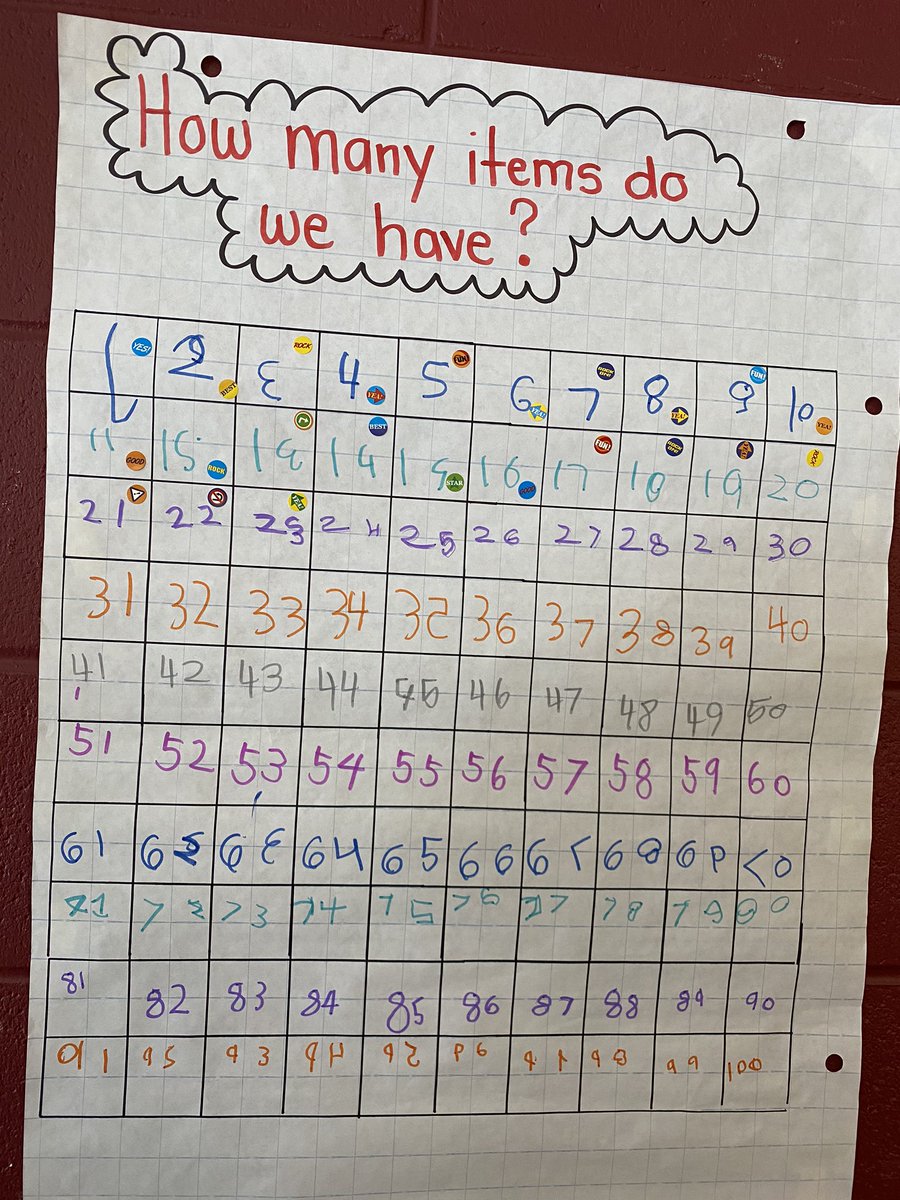 How many items do
we have?
1 YES! 2 BEST! 3 ROCK 4 YEA! 5 FUN! 6 YEA! 7 ROCK ON! 8 YEA! 9 FUN! 10 YEA!
11 GOOD 15 ROCK 13 14 BEST 15 STAR 16 GOOD 17 FUN! 18 19 20 ROCK
21 22 23 24 25 26 27 28 29 30
31 32 33 34 35 36 37 38 39 40
41 42 43 44 45 46 47 48 49 50
51 52 53 54 55 56 57 58 59 60
61 62 63 64 65 66 67 68 69 70
71 72 73 74 75 76 77 78 79 80
81 82 83 84 85 86 87 88 89 90
91 95 93 94 92 96 97 98 99 100